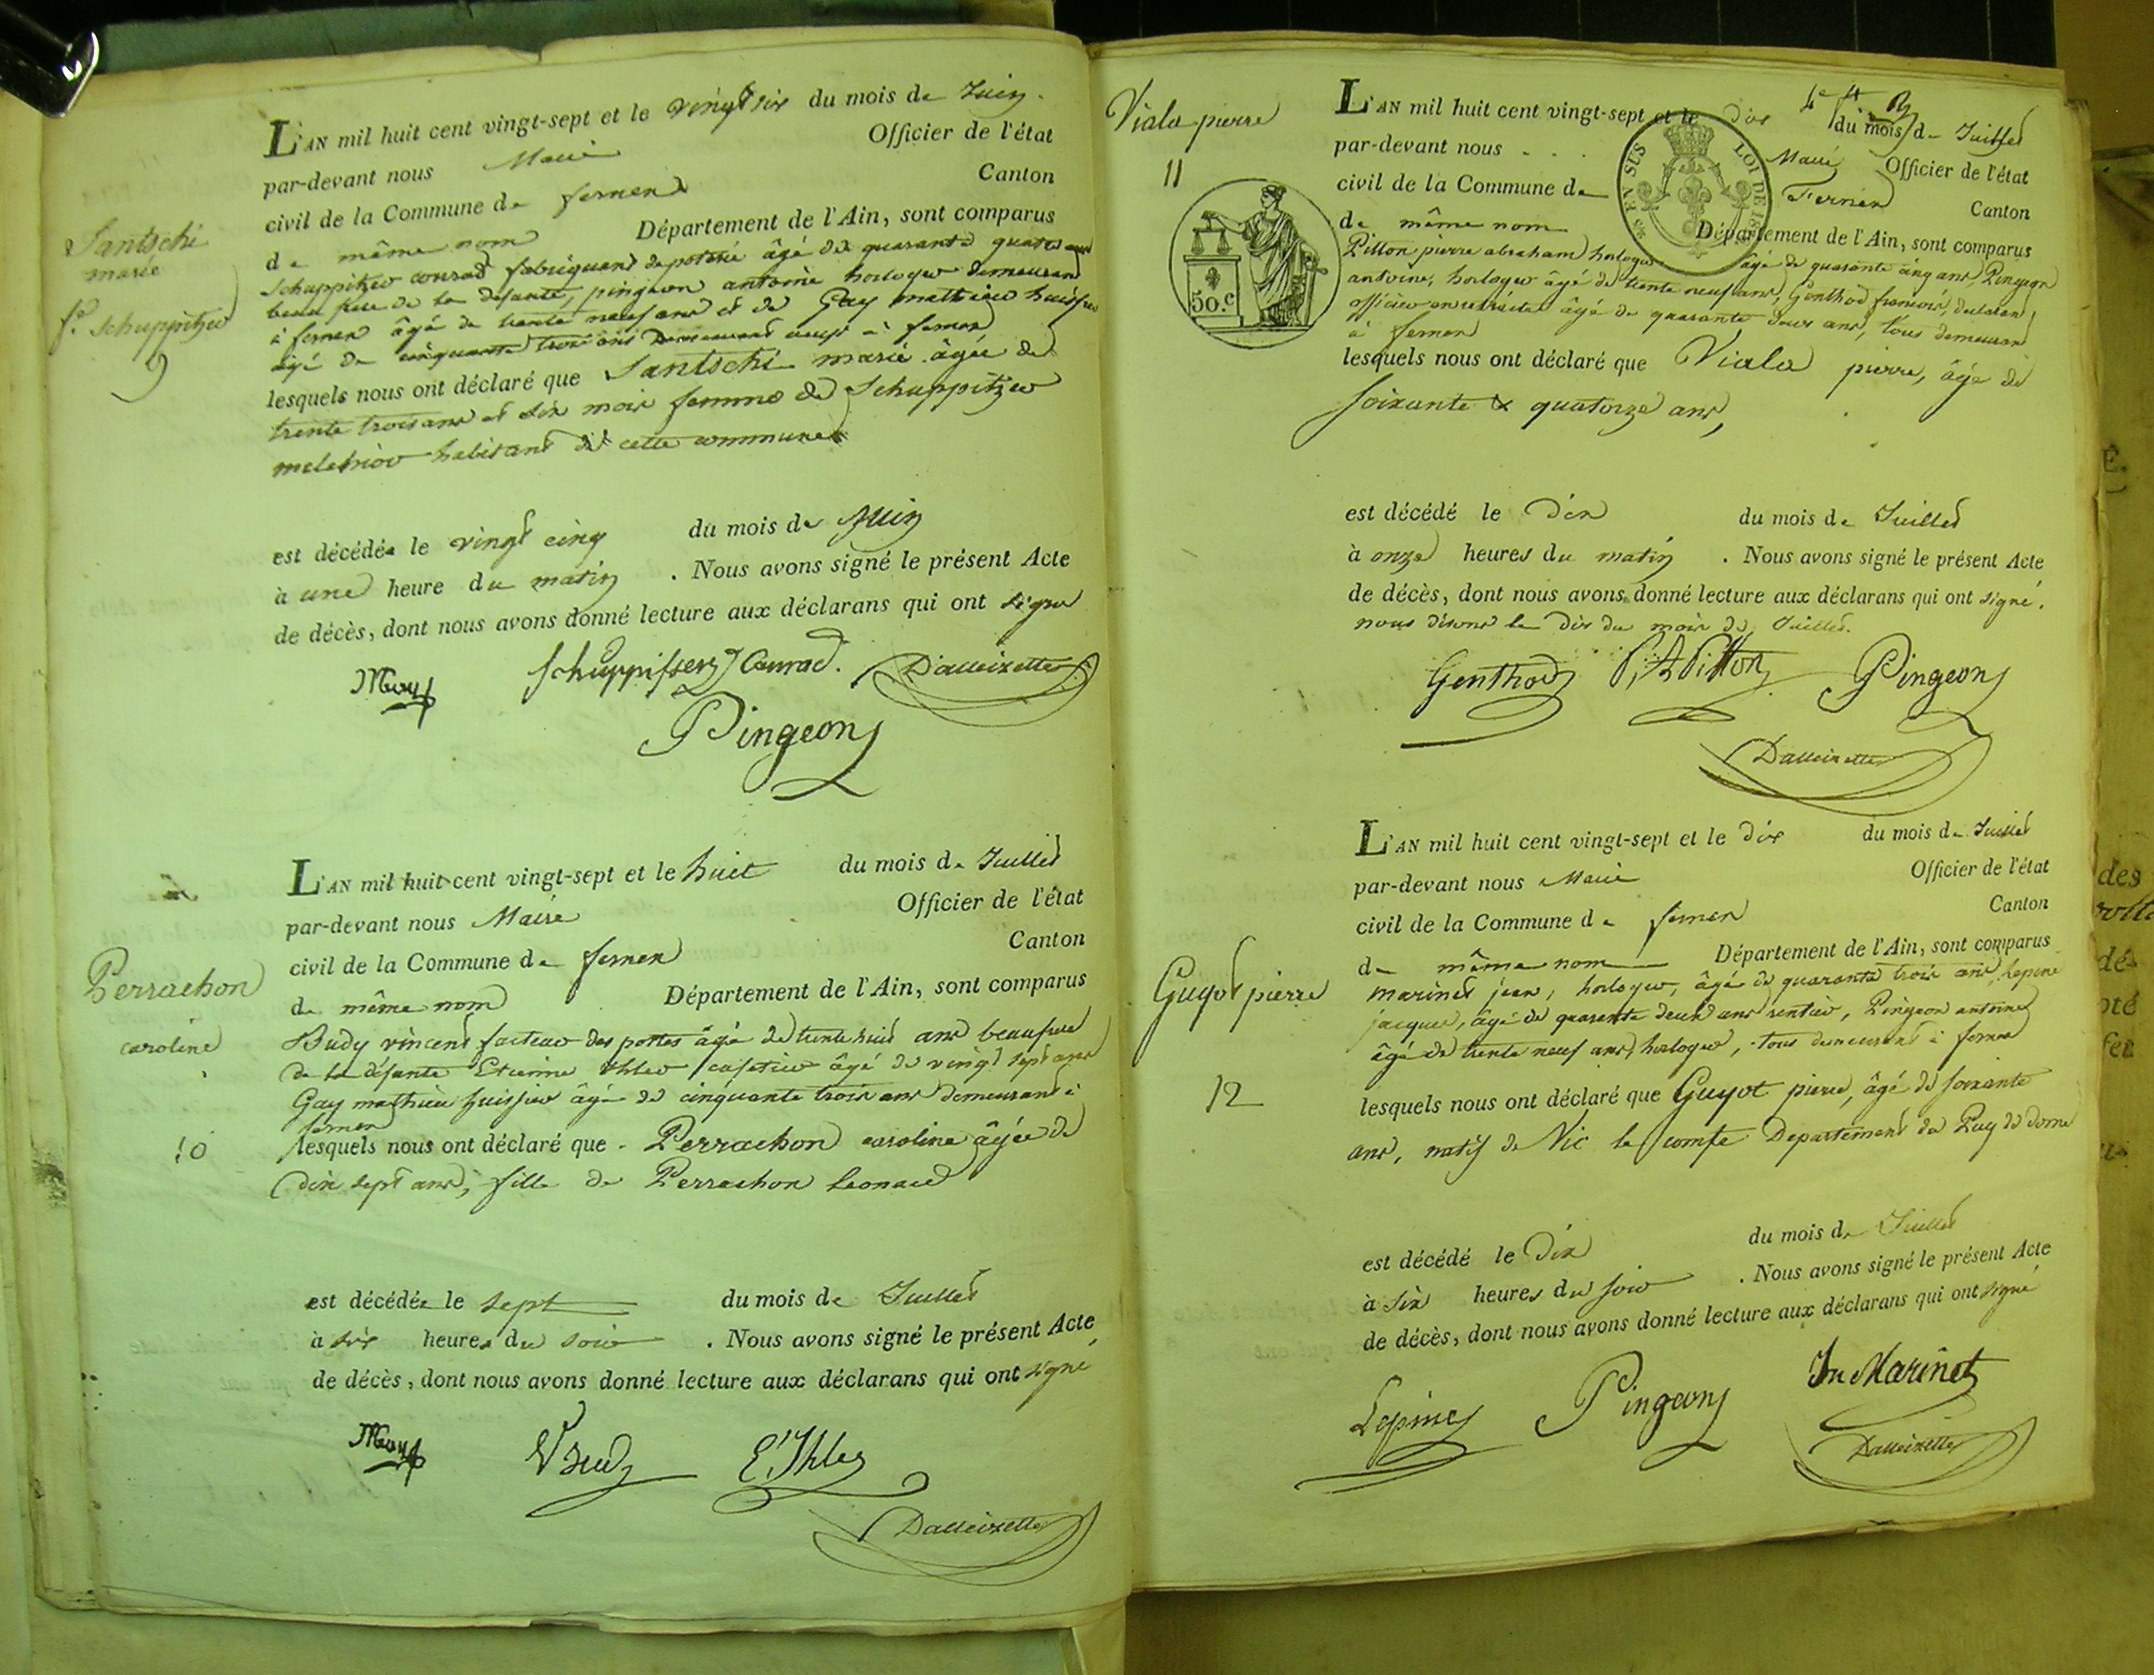 L'AN mil huit cent vingt-sept et le vingt six du mois de Juin
par-devant nous Maire Officier de l'état
civil de la Commune de ferney Canton
de même nom Département de l'Ain, sont comparus
Santschi
marie
fe Schuppitzer
9
Schuppitzer conrad fabriquant de poterie âgé de quarante quatre ans
beau frere de la défunte, pingeon antoine horloger demeurant
à ferney âgé de trente neuf ans et de Gay mathieu huissier
âgé de cinquante trois ans demeurant aussi à ferney
lesquels nous ont déclaré que Santschi marie âgée de
trente trois ans et six mois femme de Schuppitzer
melchior habitant de cette commune
est décédée le vingt cinq du mois de Juin
à une heure du matin . Nous avons signé le présent Acte
de décès, dont nous avons donné lecture aux déclarans qui ont signé
Schuppisser Conrad. Dalleizette
Pingeon
L'AN mil huit cent vingt-sept et le huit du mois de Juillet
par-devant nous Maire Officier de l'état
civil de la Commune de ferney Canton
de même nom Département de l'Ain, sont comparus
Perrachon
caroline
10
Budy vincent facteur des postes âgé de trente huit ans beaufrere
de la défunte Etienne Ihler cafetier âgé de vingt sept ans
Gay mathieu huissier âgé de cinquante trois ans demeurant à
ferney
lesquels nous ont déclaré que Perrachon caroline âgée de
dix sept ans, fille de Perrachon Leonard
est décédée le sept du mois de Juillet
à six heures du soir . Nous avons signé le présent Acte
de décès, dont nous avons donné lecture aux déclarans qui ont signé
E. Ihler
Dalleizette
Viala pierre
11
50.c
EN SUS LOI DE
L'AN mil huit cent vingt-sept et le dix du mois de Juillet
par-devant nous Maire Officier de l'état
civil de la Commune de Ferney Canton
de même nom Département de l'Ain, sont comparus
Pitton pierre abraham horloger âgé de quarante cinq ans, Pingeon
antoine, horloger âgé de trente neuf ans, Genthod francois, declarant,
officier en retraite âgé de quarante deux ans, tous demeurant
à ferney
lesquels nous ont déclaré que Viala pierre, âgé de
soixante & quatorze ans,
est décédé le Dix du mois de Juillet
à onze heures du matin . Nous avons signé le présent Acte
de décès, dont nous avons donné lecture aux déclarans qui ont signé.
nous disons le Dix du mois de Juillet.
Genthod P. A Pitton Pingeon
Dalleizette
L'AN mil huit cent vingt-sept et le dix du mois de Juillet
par-devant nous Maire Officier de l'état
civil de la Commune de ferney Canton
de même nom Département de l'Ain, sont comparus
Guyot pierre
12
marinet jean, horloger, âgé de quarante trois ans, Lepine
jacques, âgé de quarente deux ans rentier, Pingeon antoine
âgé de trente neuf ans, horloger, tous demeurant à ferney
lesquels nous ont déclaré que Guyot pierre, âgé de soixante
ans, natif de Vic le comte Departement du Puy de dome
est décédé le Dix du mois de Juillet
à six heures du soir . Nous avons signé le présent Acte
de décès, dont nous avons donné lecture aux déclarans qui ont signé
Lepine Pingeon Jn Marinet
Dalleizette